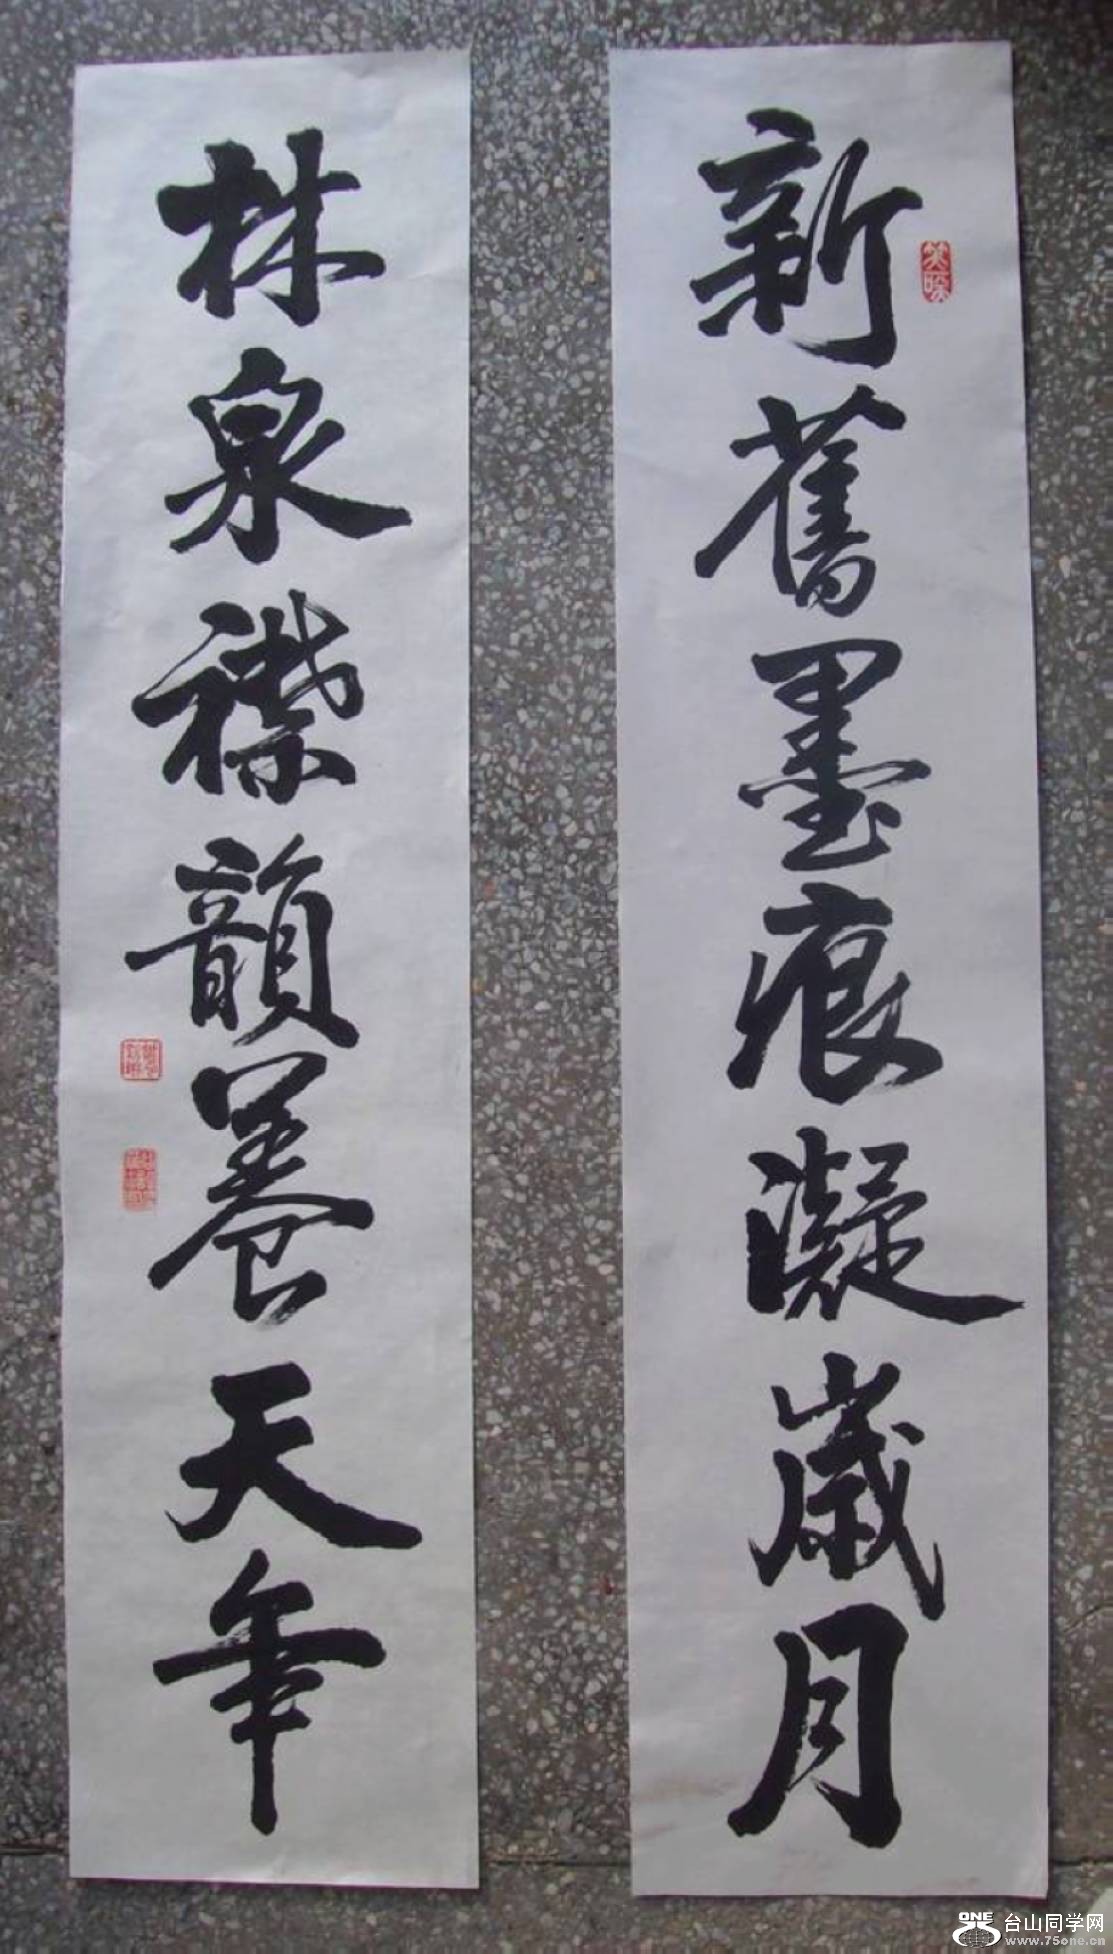 新舊墨痕凝歲月
林泉襟韻養天年
ONE 台山同学网
www.75one.cn